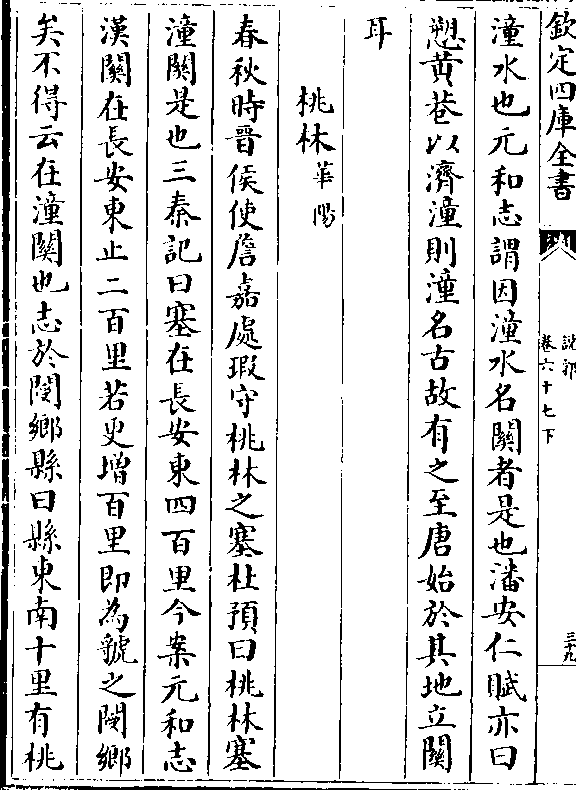 欽定四庫全書
說郛
卷六十七下
三十九
潼水也元和志謂因潼水名關者是也潘安仁賦亦曰
愬黄巷以濟潼則潼名古故有之至唐始於其地立關
耳
桃林華陽
春秋時晉侯使詹嘉處瑕守桃林之塞杜預曰桃林塞
潼關是也三秦記曰塞在長安東四百里今案元和志
漢關在長安東止二百里若更增百里即為虢之閿鄉
矣不得云在潼關也志於閿鄉縣曰縣東南十里有桃